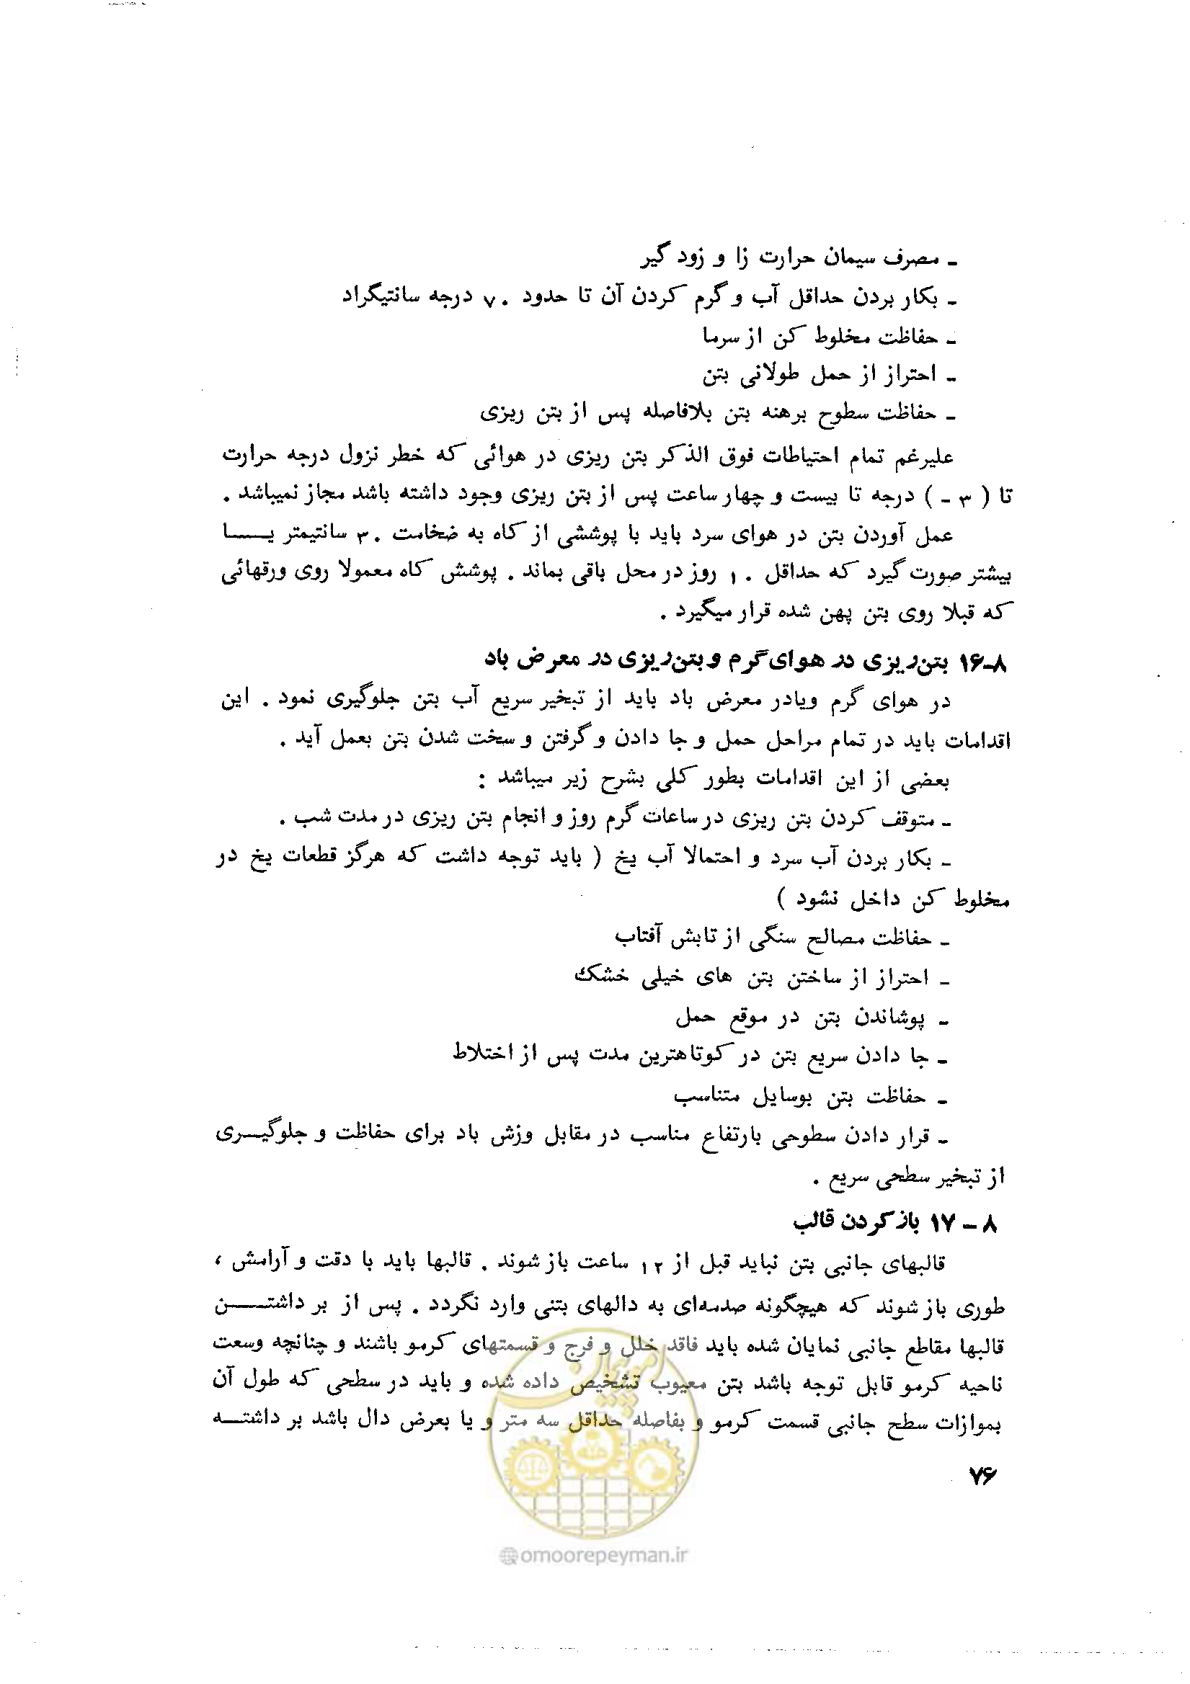 ـ مصرف سیمان حرارت زا و زود گیر
ـ بکار بردن حداقل آب و گرم کردن آن تا حدود ۷۰ درجه سانتیگراد
ـ حفاظت مخلوط کن از سرما
ـ احتراز از حمل طولانی بتن
ـ حفاظت سطوح برهنه بتن بلافاصله پس از بتن ریزی
علیرغم تمام احتیاطات فوق الذکر بتن ریزی در هوائی که خطر نزول درجه حرارت
تا ( ۳ - ) درجه تا بیست و چهار ساعت پس از بتن ریزی وجود داشته باشد مجاز نمیباشد .
عمل آوردن بتن در هوای سرد باید با پوششی از کاه به ضخامت ۳۰ سانتیمتر یـــا
بیشتر صورت گیرد که حداقل ۱۰ روز در محل باقی بماند . پوشش کاه معمولا روی ورقهائی
که قبلا روی بتن پهن شده قرار میگیرد .
۸ـ۱۶ بتن‌ریزی در هوای گرم و بتن‌ریزی در معرض باد
در هوای گرم ویادر معرض باد باید از تبخیر سریع آب بتن جلوگیری نمود . این
اقدامات باید در تمام مراحل حمل و جا دادن و گرفتن و سخت شدن بتن بعمل آید .
بعضی از این اقدامات بطور کلی بشرح زیر میباشد :
ـ متوقف کردن بتن ریزی در ساعات گرم روز و انجام بتن ریزی در مدت شب .
ـ بکار بردن آب سرد و احتمالا آب یخ ( باید توجه داشت که هرگز قطعات یخ در
مخلوط کن داخل نشود )
ـ حفاظت مصالح سنگی از تابش آفتاب
ـ احتراز از ساختن بتن های خیلی خشک
ـ پوشاندن بتن در موقع حمل
ـ جا دادن سریع بتن در کوتاهترین مدت پس از اختلاط
ـ حفاظت بتن بوسایل متناسب
ـ قرار دادن سطوحی بارتفاع مناسب در مقابل وزش باد برای حفاظت و جلوگیــری
از تبخیر سطحی سریع .
۸ - ۱۷ باز کردن قالب
قالبهای جانبی بتن نباید قبل از ۱۲ ساعت باز شوند . قالبها باید با دقت و آرامش ،
طوری باز شوند که هیچگونه صدمه‌ای به دالهای بتنی وارد نگردد . پس از بر داشتـــن
قالبها مقاطع جانبی نمایان شده باید فاقد خلل و فرج و قسمتهای کرمو باشند و چنانچه وسعت
ناحیه کرمو قابل توجه باشد بتن معیوب تشخیص داده شده و باید در سطحی که طول آن
بموازات سطح جانبی قسمت کرمو و بفاصله حداقل سه متر و یا بعرض دال باشد بر داشتــه
۷۶
امور پیمان
@omoorepeyman.ir